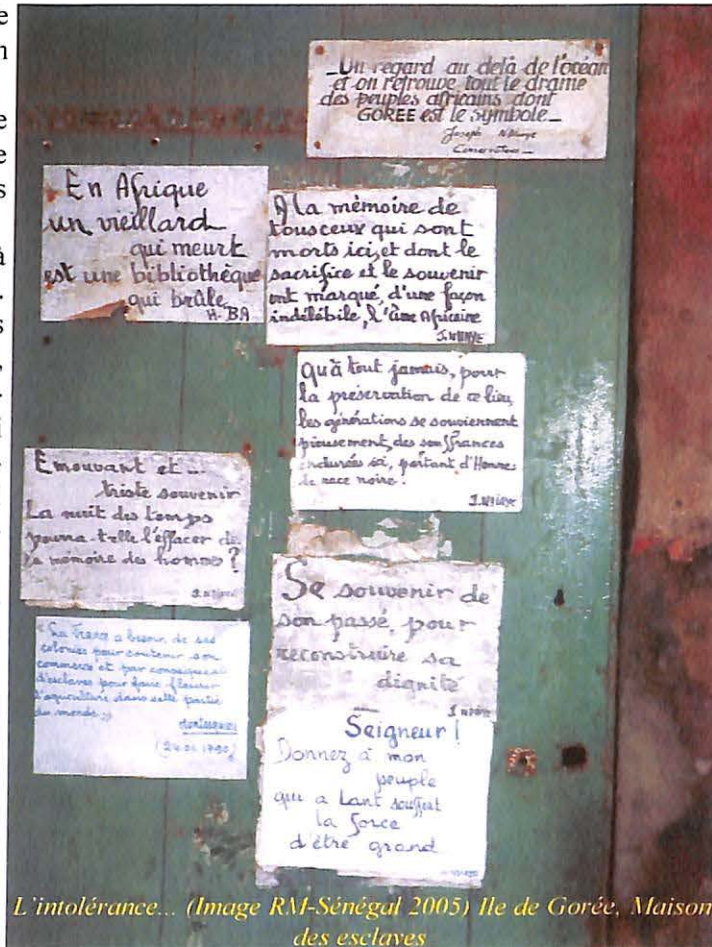 _Un regard au delà de l'océan
et on retrouve tout le drame
des peuples africains dont
GOREE est le symbole_
Joseph N'Diaye
Conservateur_
En Afrique
un vieillard
qui meurt
est une bibliothèque
qui brûle
H. BA
A la mémoire de
tous ceux qui sont
morts ici, et dont le
sacrifice et le souvenir
ont marqué, d'une façon
indélébile, l'âme Africaine
J. NDIAYE
Qu'à tout jamais, pour
la préservation de ce lieu,
les générations se souviennent
pieusement, des souffrances
endurées ici, par tant d'Hommes
de race noire !
J. NDIAYE
Emouvant et ...
triste souvenir
La nuit des temps
pourra-t-elle l'effacer de
la mémoire des hommes ?
J. NDIAYE
a besoin de ses
colonies pour soutenir son
commerce et par conséquent
d'esclaves pour faire fleurir
l'agriculture dans cette partie
du monde »
(24.01.1790)
Se souvenir de
son passé, pour
reconstruire sa
dignité
J. NDIAYE
Seigneur !
Donnez à mon
peuple
qui a tant souffert
la force
d'être grand
J. NDIAYE
L'intolérance... (Image RM-Sénégal 2005) Ile de Gorée, Maison
des esclaves